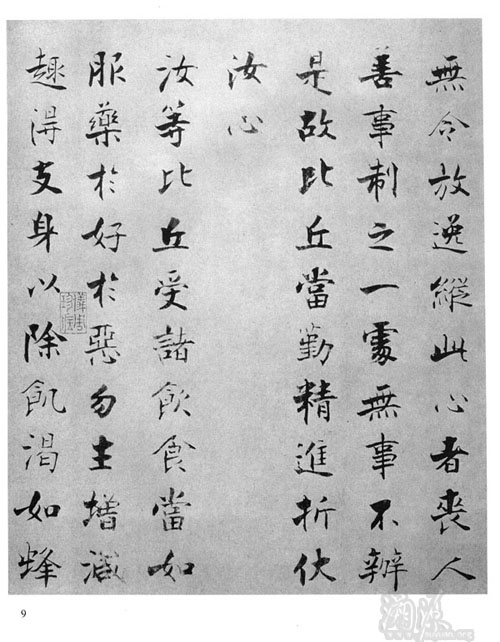 無令放逸縱此心者喪人
善事制之一處無事不辦
是故比丘當勤精進折伏
汝心
汝等比丘受諸飲食當如
服藥於好於惡勿生增減
趣得支身以除飢渴如蜂
9